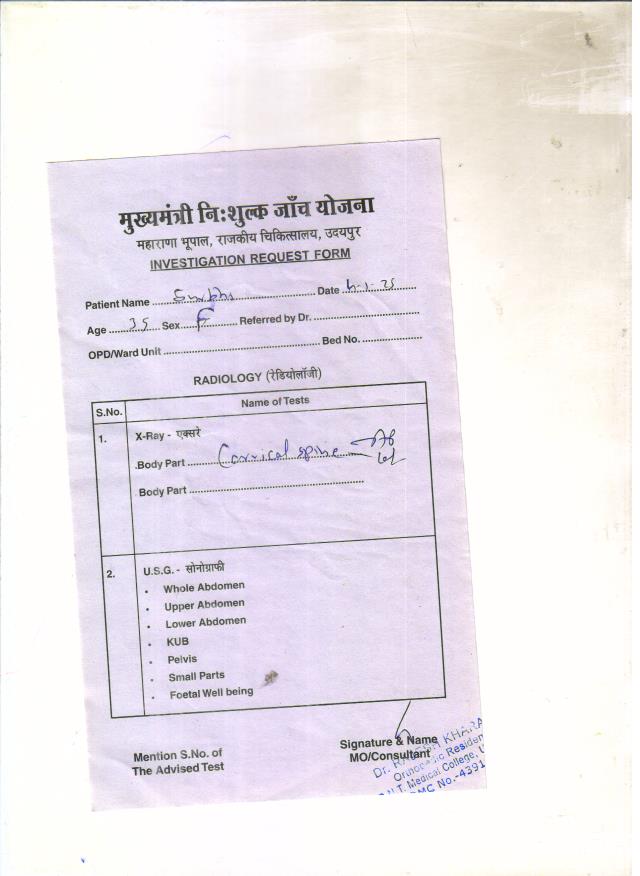 मुख्यमंत्री निःशुल्क जाँच योजना
महाराणा भूपाल, राजकीय चिकित्सालय, उदयपुर
INVESTIGATION REQUEST FORM
Patient Name .......... Date ..........
Age 35 Sex F Referred by Dr. ..........
OPD/Ward Unit .......... Bed No. ..........
RADIOLOGY (रेडियोलॉजी)
S.No. Name of Tests
1. X-Ray - एक्सरे
Body Part Cervical spine AP
Body Part ..........
2. U.S.G. - सोनोग्राफी
• Whole Abdomen
• Upper Abdomen
• Lower Abdomen
• KUB
• Pelvis
• Small Parts
• Foetal Well being
Mention S.No. of
The Advised Test
Signature & Name
MO/Consultant
Dr. KHARA
Orthopaedic Residen
R.N.T. Medical College, U
RMC No.-4391